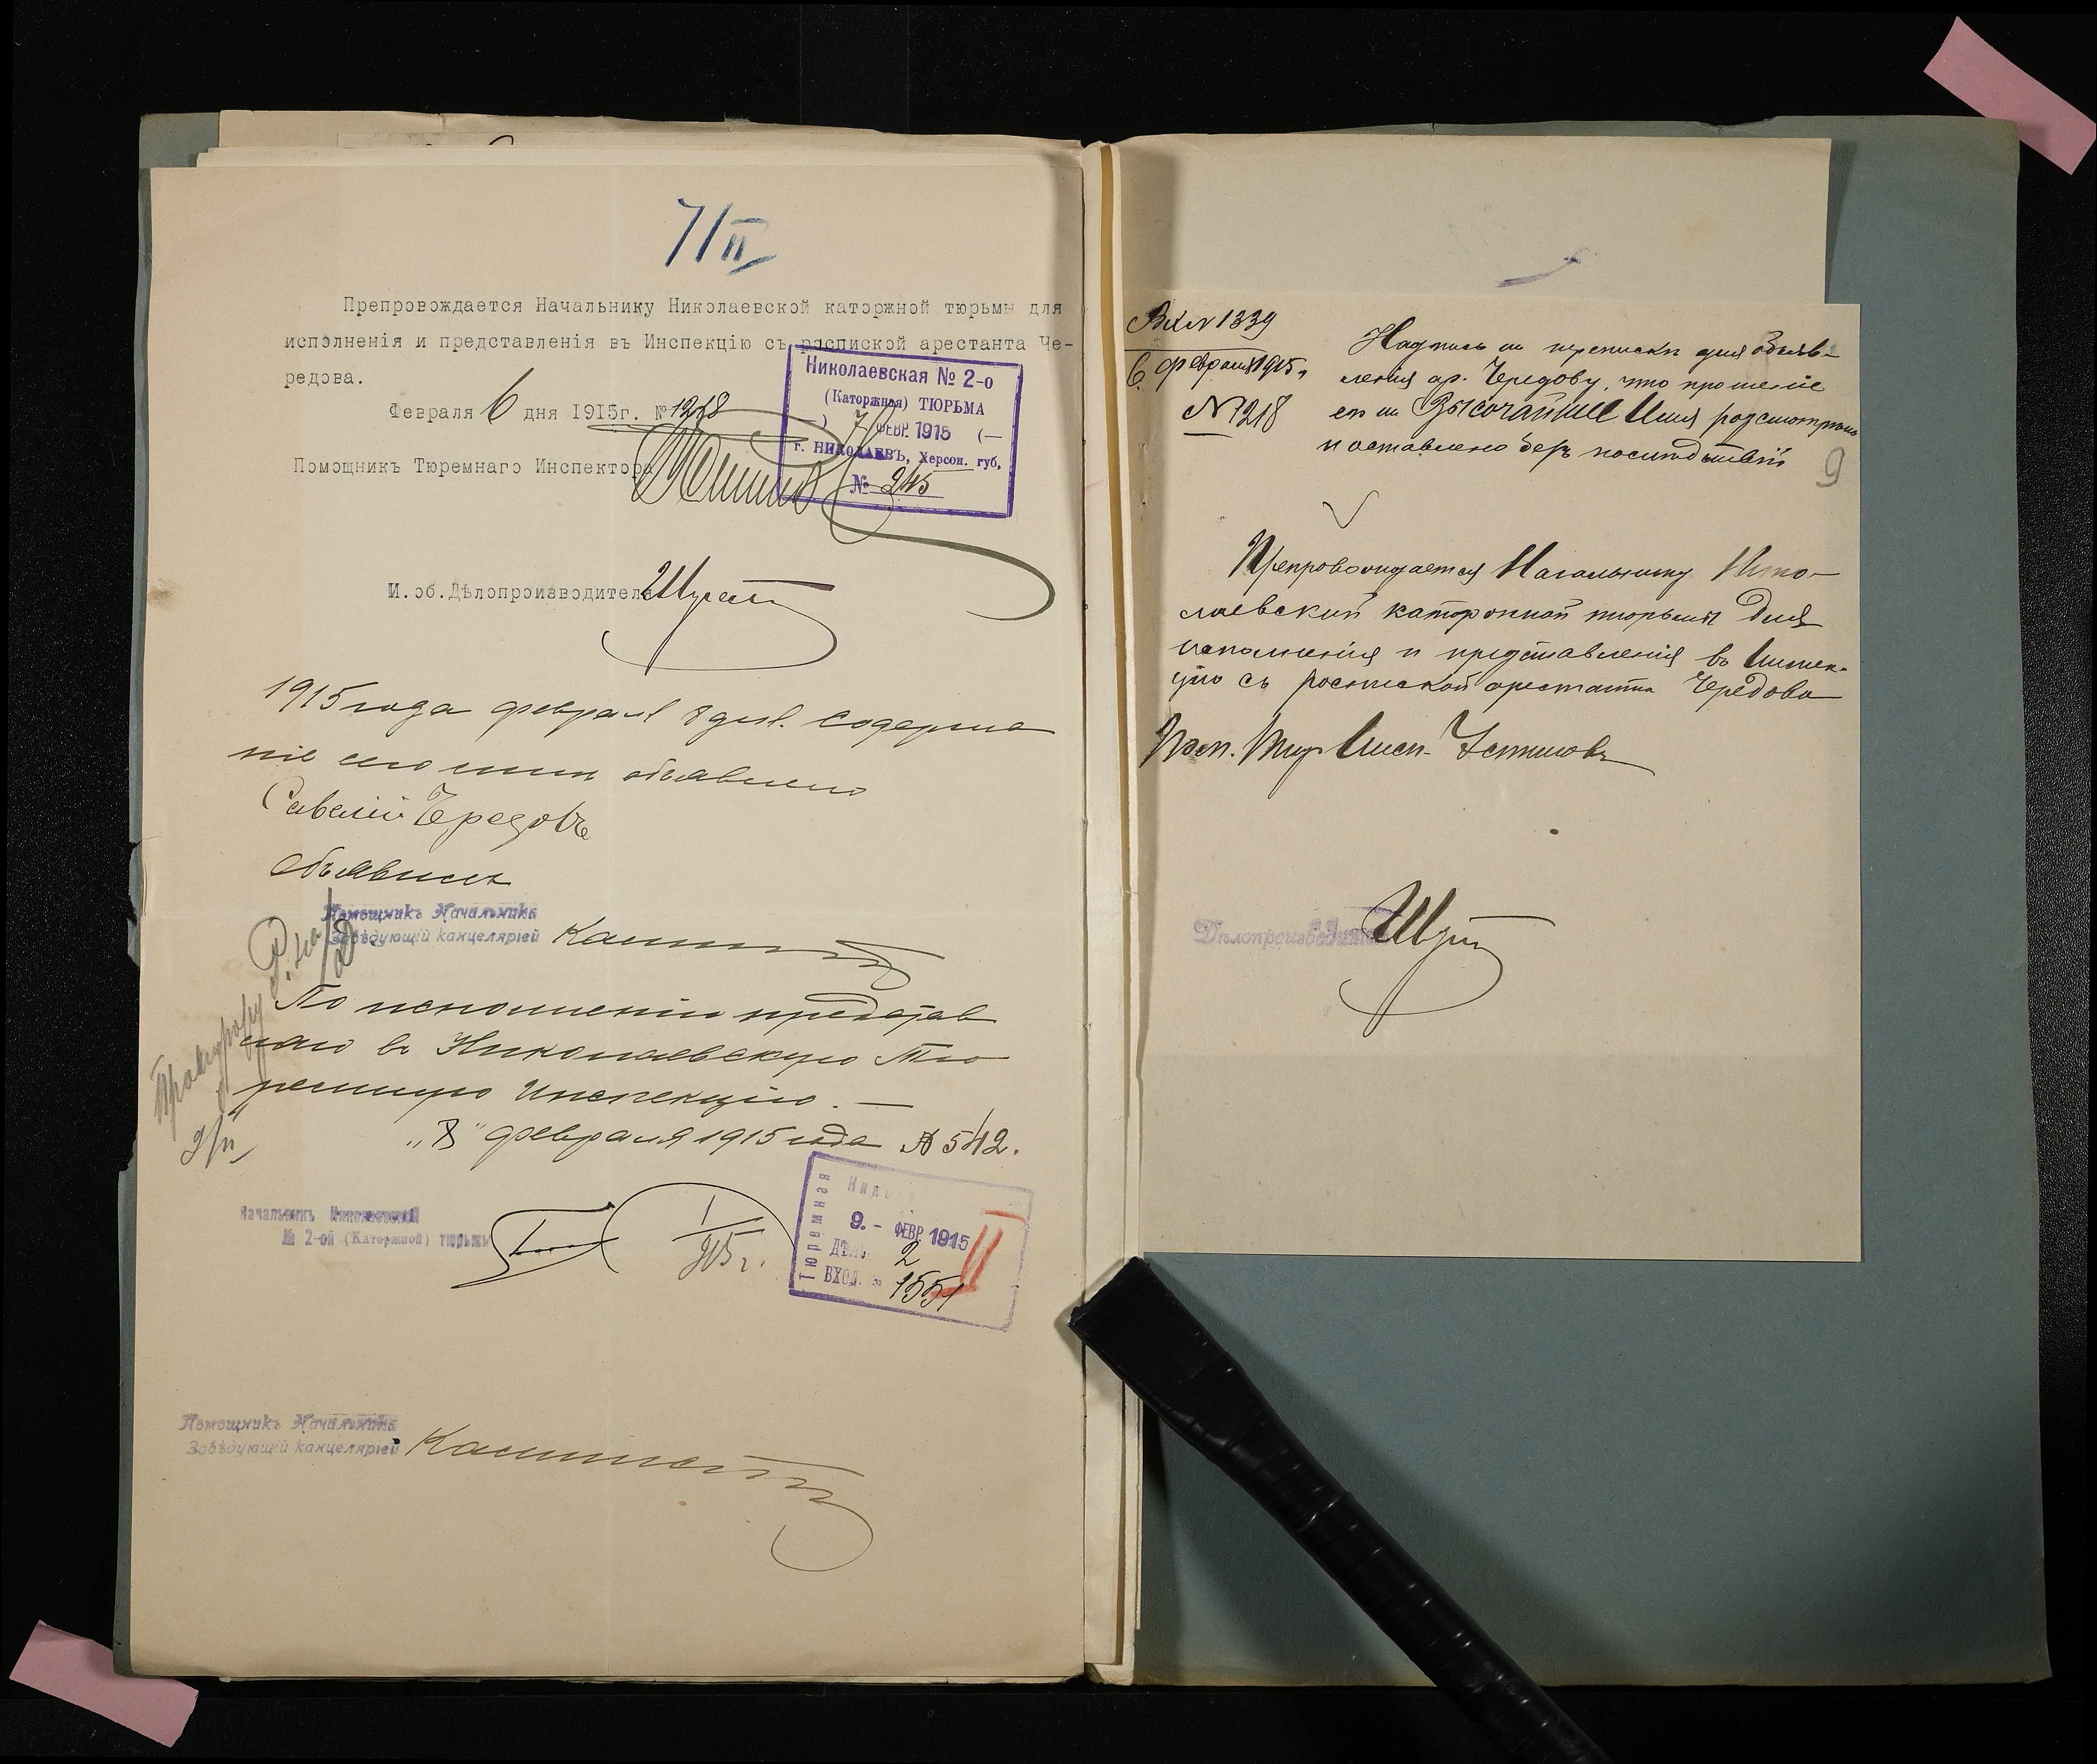 7/II
Препровождается Начальнику Николаевской каторжной тюрьмы для
исполненія и представленія въ Инспекцію съ распиской арестанта Че-
редова.
Февраля 6 дня 1915г. № 1218
Помощникъ Тюремнаго Инспектора
Николаевская № 2-о
(Каторжная) ТЮРЬМА
7 ФЕВР. 1915
г. НИКОЛАЕВЪ, Херсон. губ.
№ 245
И. об. Дѣлопроизводителя
1915 года февраля 8 дня. Содержа
ніе сего мнѣ объявлено
Савелій Чередовъ
Объявилъ
Помощникъ Начальника
Завѣдующій канцеляріей
По исполненіи представ
ляю въ Николаевскую Тю
ремную Инспекцію. —
Прокурору
9/II
"8" февраля 1915 года № 542.
Начальникъ Николаевской
№ 2-ой (Каторжной) тюрьмы
Тюремная
9.- ФЕВР. 1915
ДѢЛ. 2
ВХОД. № 1551
II
Помощникъ Начальника
Завѣдующій канцеляріей
Вх. № 1339
6 февраля 1915 г.
№ 1218
Надпись на перепискѣ для объяв-
ленія ар. Чередову, что прошеніе
его на Высочайшее Имя разсмотрѣно
и оставлено безъ послѣдствій
9
Препровождается Начальнику Нико-
лаевской каторжной тюрьмы для
исполненія и представленія въ Инспек-
цію съ роспиской арестанта Чередова
Пом. Тюр. Инсп.
Дѣлопроизводитель